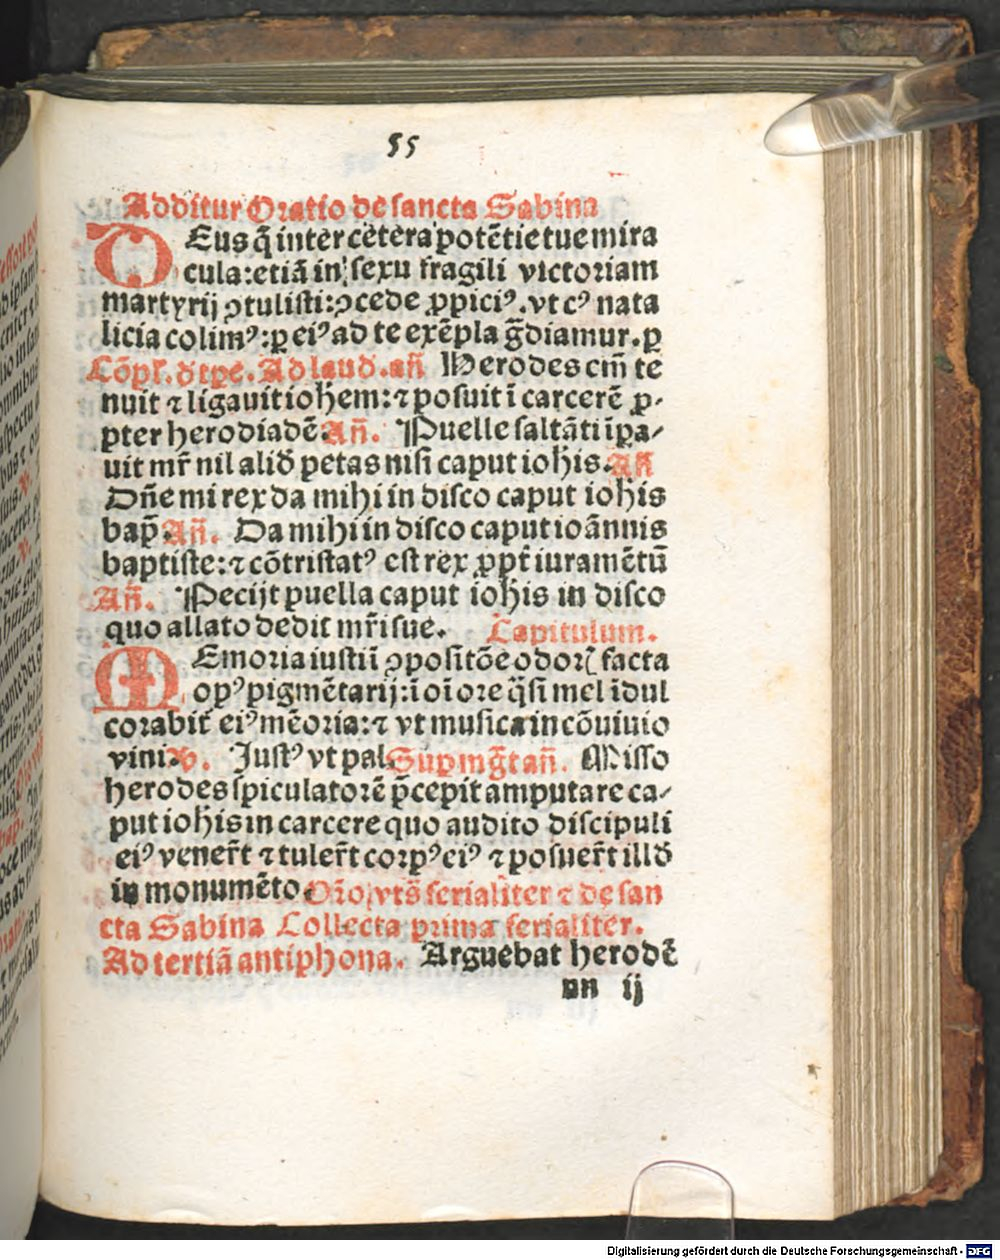 55
Additur Oratio de sancta Sabina
DEus q̃ inter cetera potẽtie tue mira
cula: etiã in sexu fragili victoriam
martyrij ꝯtulisti: ꝯcede ꝓpiciꝰ. vt cꝰ nata
licia colimꝰ: ꝑ eiꝰ ad te exẽpla g̃diamur. ꝑ
Cõpl̃. d̃ tp̃e. Ad laud. añ Herodes cm̃ te
nuit ⁊ ligauit iohem: ⁊ posuit ĩ carcerẽ ꝓ-
pter herodiadẽ Añ. Puelle saltãti ĩpa/
uit mr̃ nil alid̃ petas nisi caput iohis. Añ
Dñe mi rex da mihi in disco caput iohis
bap̃ Añ. Da mihi in disco caput ioãnnis
baptiste: ⁊ cõtristatꝰ est rex ꝓpt̃ iuramẽtũ
Añ. Pecijt puella caput iohis in disco
quo allato dedit mr̃i sue. Capitulum.
MEmoria iusti ĩ ꝯpositõe odorꝭ facta
opꝰ pigmẽtarij: ĩ oĩ ore q̃si mel ĩdul
corabit̃ eiꝰ mẽoria: ⁊ vt musica in cõuiuio
vini. V. Justꝰ vt pal. Sup mg̃t añ. Misso
herodes spiculatorẽ p̃cepit amputare ca/
put iohis in carcere quo audito discipuli
eiꝰ vener̃t ⁊ tuler̃t corpꝰ eiꝰ ⁊ posuer̃t illd̃
in monumẽto. Or̃o vts̃ ferialiter ⁊ de san
cta Sabina Collecta prima ferialiter.
Ad tertiã antiphona. Arguebat herodẽ
nn ij
Digitalisierung gefördert durch die Deutsche Forschungsgemeinschaft - DFG